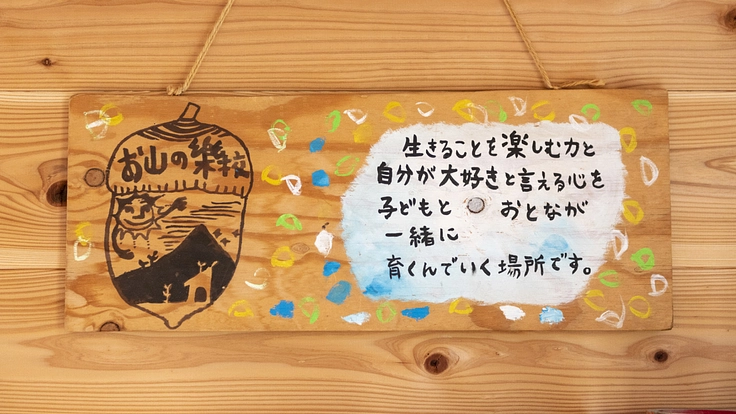 お山の樂校
生きることを楽しむ力と
自分が大好きと言える心を
子どもと おとなが
一緒に
育くんでいく場所です。